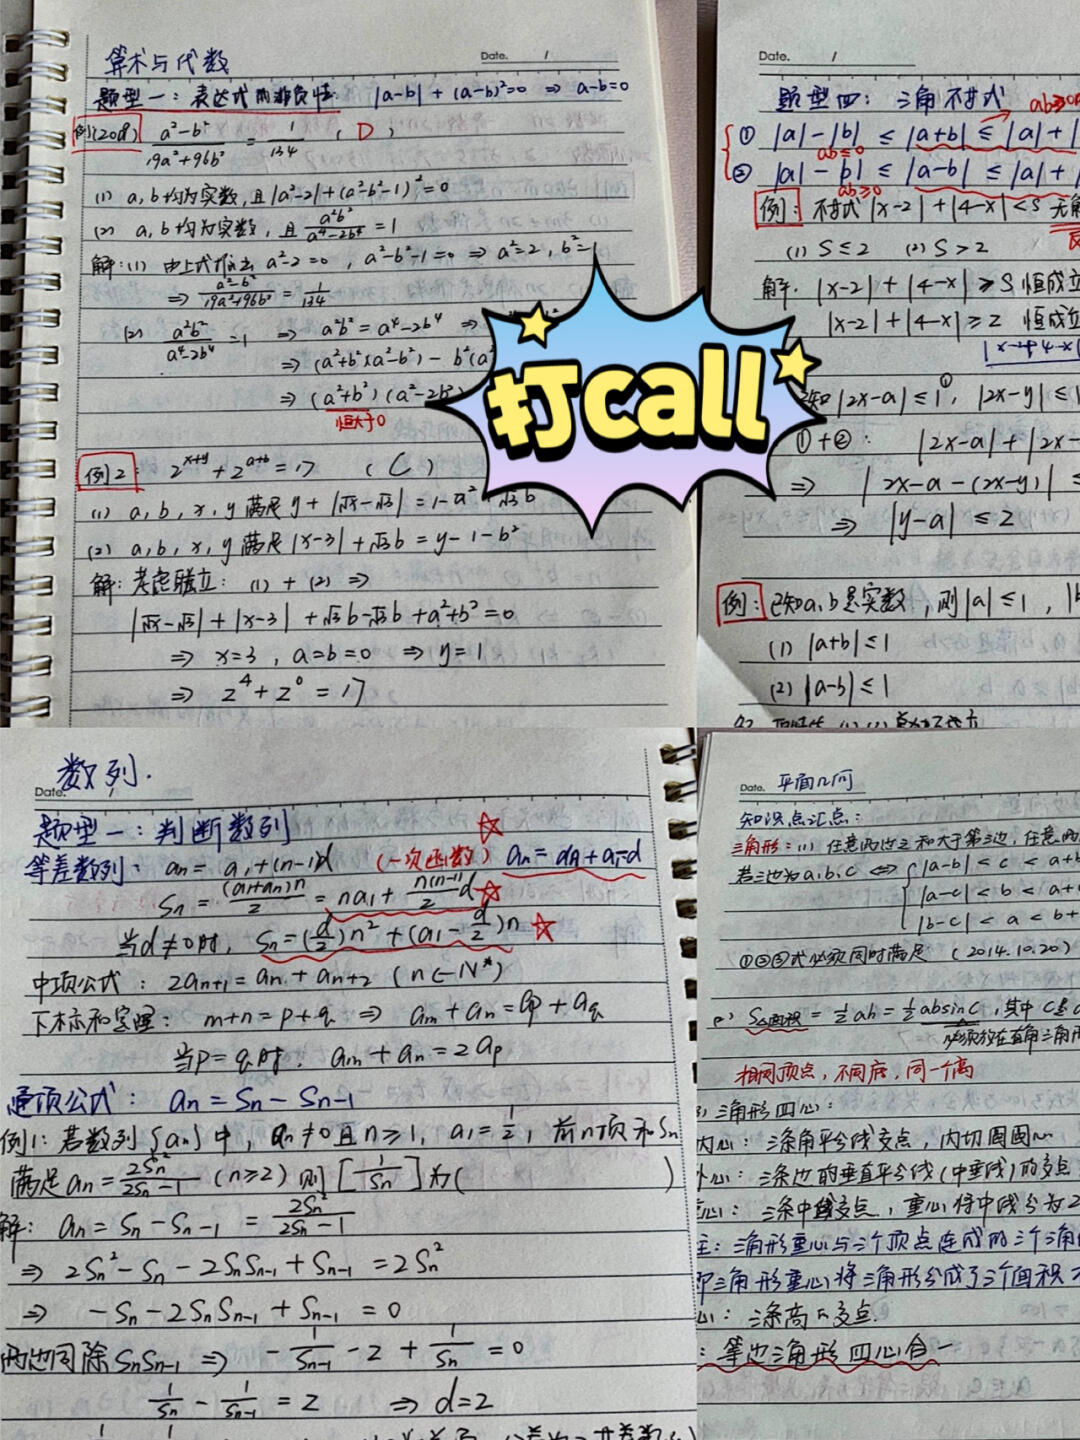 算术与代数
Date. /
题型一：表达式的非负性： |a-b| + (a-b)²=0 ⇒ a-b=0
例1(2009) (a²-b²)/(19a²+96b²) = 1/134 (D)
(1) a, b均为实数, 且|a²-2|+(a²-b²-1)²=0
(2) a, b均为实数, 且 a²b²/(a⁴-2b⁴) = 1
解：(1) 由上式 a²-2=0 , a²-b²-1=0 ⇒ a²=2, b²=1
⇒ (a²-b²)/(19a²+96b²) = 1/134
(2) a²b²/(a⁴-2b⁴) =1 ⇒ a²b² = a⁴-2b⁴ ⇒
⇒ (a²+b²)(a²-b²) - b²(a²
⇒ (a²+b²)(a²-2b²)
恒大于0
打call
例2 2^(x+y) + 2^(a+b) = 17 (C)
(1) a, b, x, y 满足 y + |√x-√3| = 1-a²+√3b
(2) a, b, x, y 满足 |x-3| + √3b = y-1-b²
解：考虑联立： (1) + (2) ⇒
|√x-√3| + |x-3| + √3b-√3b + a²+b² = 0
⇒ x=3 , a=b=0 ⇒ y=1
⇒ 2⁴+2⁰ = 17
Date. /
题型四：三角不等式
ab≥0
① |a|-|b| ≤ |a+b| ≤ |a|+|
ab≤0
② |a|-|b| ≤ |a-b| ≤ |a|+
ab≥0
例：不等式|x-2|+|4-x|<S 无解
(1) S≤2 (2) S>2
解. |x-2|+|4-x| ≥ S 恒成立
|x-2|+|4-x| ≥ 2 恒成立
|x-2+4-x|
知 |2x-a| ≤ 1①, |2x-y| ≤ 1
①+②: |2x-a|+|2x-
⇒ |2x-a-(2x-y)| ≤
⇒ |y-a| ≤ 2
例：已知a, b是实数, 则|a|≤1, |b
(1) |a+b| ≤ 1
(2) |a-b| ≤ 1
数列.
Date. /
题型一：判断数列
等差数列： an = a1+(n-1)d (一次函数) an = dn+a1-d
Sn = (a1+an)n/2 = na1 + n(n-1)/2 d
当d≠0时, Sn=(d/2)n²+(a1-d/2)n
中项公式： 2an+1=an+an+2 (n∈N*)
下标和定理： m+n=p+q ⇒ am+an=ap+aq
当p=q时. am+an=2ap
通项公式： an = Sn-Sn-1
例1: 若数列{an}中, an≠0且n≥1, a1=1/2, 前n项和Sn
满足an = 2Sn²/(2Sn-1) (n≥2) 则[1/Sn]为( )
解： an = Sn-Sn-1 = 2Sn²/(2Sn-1)
⇒ 2Sn²-Sn-2SnSn-1+Sn-1 = 2Sn²
⇒ -Sn-2SnSn-1+Sn-1 = 0
两边同除SnSn-1 ⇒ -1/Sn-1 - 2 + 1/Sn = 0
1/Sn - 1/Sn-1 = 2 ⇒ d=2
Date. 平面几何
知识点汇总：
三角形：(1) 任意两边之和大于第三边, 任意两
若三边为a,b,c ⇔ |a-b| < c < a+b
|a-c| < b < a+c
|b-c| < a < b+
①②③式必须同时满足 (2014.10.20)
(2) S△面积 = ½ah = ½absinC, 其中C是
必须放在直角三角形
相同顶点, 不同底, 同一个高
三角形四心：
内心：三条角平分线交点, 内切圆圆心
外心：三条边的垂直平分线(中垂线)的交点
心：三条中线交点, 重心将中线分为2
注：三角形重心与三个顶点连成的三个三角
即三角形重心将三角形分成了三个面积
心：三条高的交点.
：等边三角形四心合一